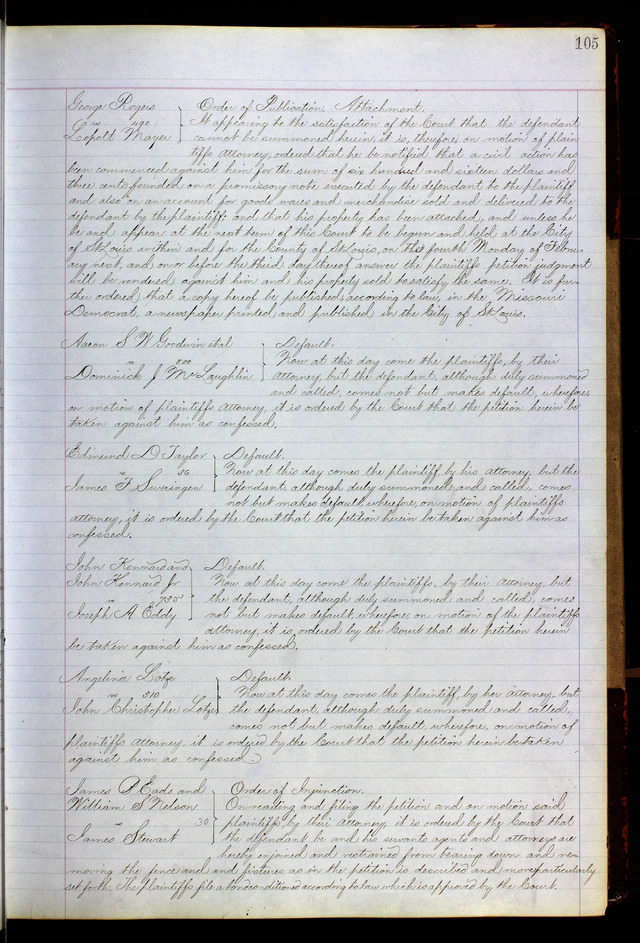 105
George Rogers } Order of Publication. Attachment.
vs 490 It appearing to the satisfaction of the Court that the defendant
Leopolt Mayer cannot be summoned herein, it is, therefore, on motion of plain
tiffs Attorney, ordered that he be notified that a civil action has
been commenced against him for the sum of six hundred and sixteen dollars and
three cents founded on a promissory note executed by the defendant to the plaintiff
and also on an account for goods wares and merchandise sold and delivered to the
defendant by the plaintiff and that his property has been attached, and unless he
be and appear at the next term of this Court to be begun and held at the City
of St Louis within and for the County of St Louis, on the fourth Monday of Febru-
ary next, and on or before the third day thereof answer the plaintiffs petition judgment
will be rendered against him and his property sold to satisfy the same. It is fur-
ther ordered that a copy hereof be published, according to law, in the Missouri
Democrat, a newspaper printed and published in the City of St Louis.
Aaron S W Goodwin et al } Default.
vs 500 Now at this day come the plaintiffs, by their
Dominick J McLaughlin attorney but the defendant, although duly summoned
and called, comes not but makes default, wherefore,
on motion of plaintiffs attorney, it is ordered by the Court that the petition herein be
taken against him as confessed.
Edmund D Taylor } Default.
vs 36 Now at this day comes the plaintiff by his attorney, but the
James F Swearingen defendant, although duly summoned and called, comes
not but makes default, wherefore, on motion of plaintiffs
attorney, it is ordered by the Court that the petition herein be taken against him as
confessed.
John Kennard and } Default.
John Kennard Jr Now at this day come the plaintiffs, by their attorney, but
vs 785 the defendant, although duly summoned and called, comes
Joseph A Eddy not but makes default, wherefore, on motion of the plaintiffs
attorney, it is ordered by the Court that the petition herein
be taken against him as confessed.
Angelina Lotze } Default.
vs 310 Now at this day comes the plaintiff, by her attorney, but
John Christopher Lotze the defendant, although duly summoned and called,
comes not but makes default, wherefore, on motion of
plaintiffs attorney it is ordered by the Court that the petition herein be taken
against him as confessed.
James B Eads and } Order of Injunction.
William S Nelson On reading and filing the petition and on motion said
vs 30 plaintiffs by their attorney, it is ordered by the Court that
James Stewart the defendant be and his servants agents and attorneys are
hereby enjoined and restrained from tearing down and re-
moving the fence and and fixtures as in the petition is described and more particularly
set forth. The plaintiffs file a bond conditioned according to law which is approved by the Court.